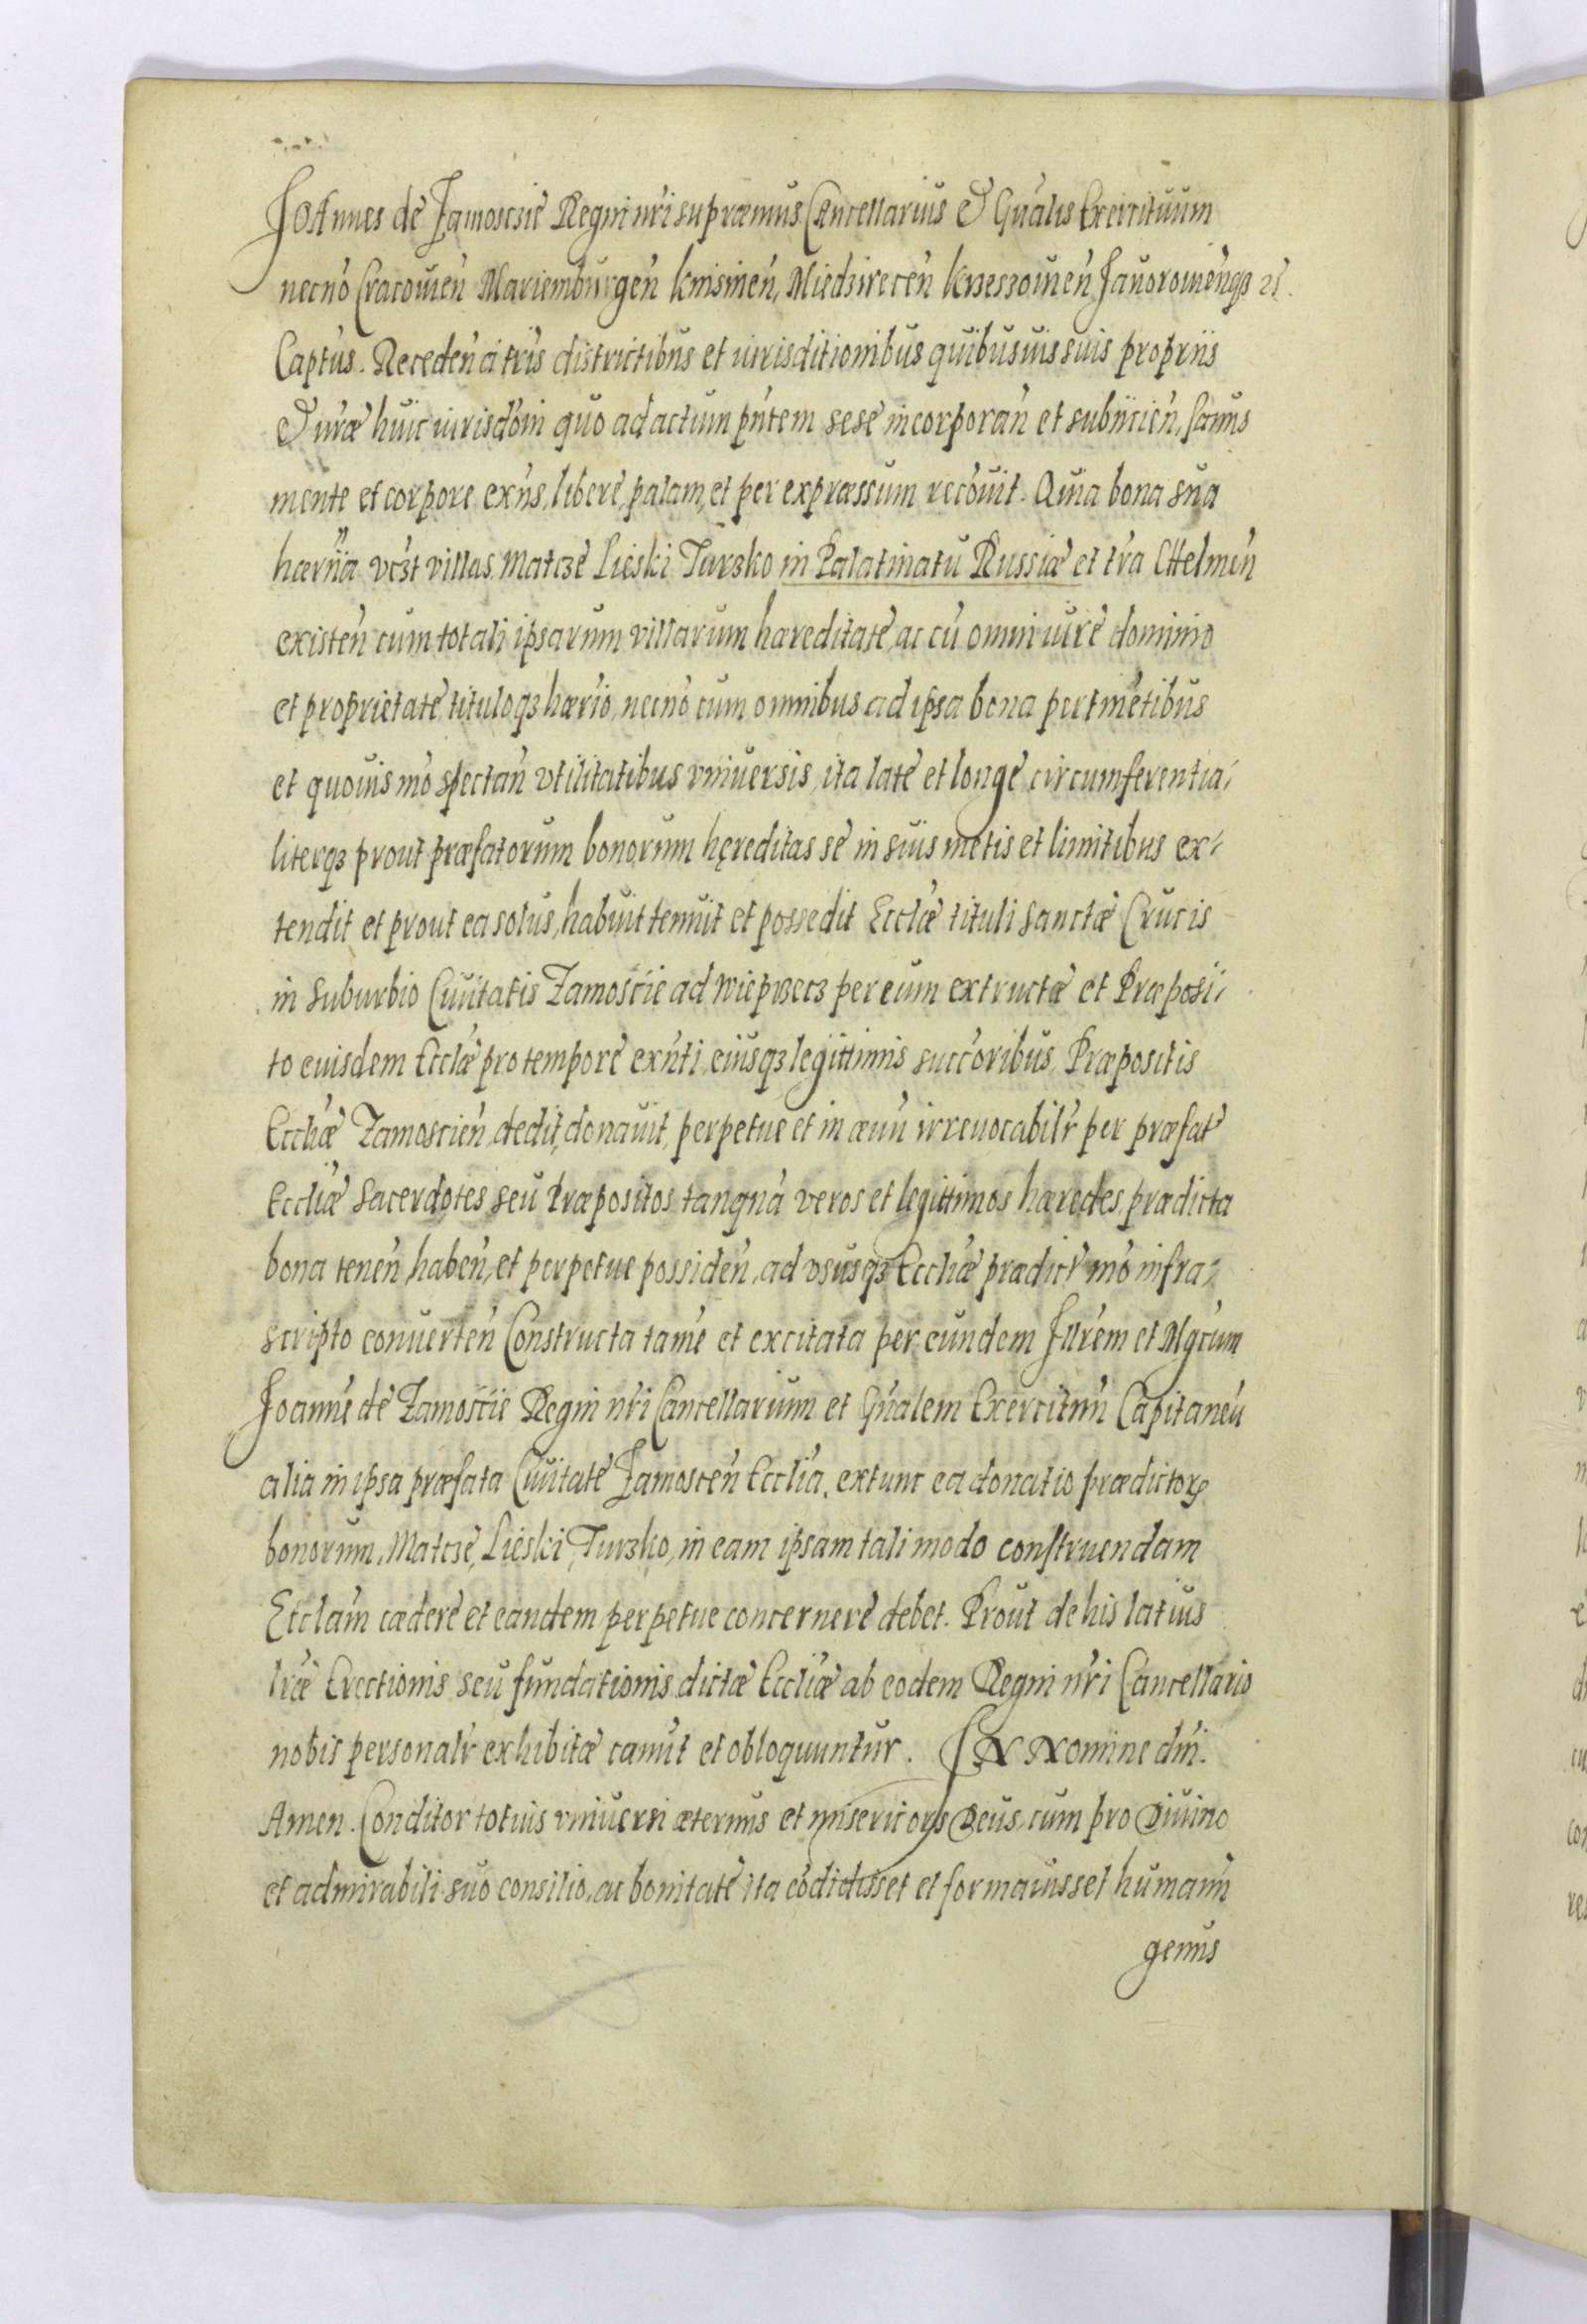 Johannes de Zamoscie Regni nri supræmus Cancellarius Et Gnalis Exercituum
necnō Cracouien Mariemburgen knisinen, Miedzirecen krzeszouien Jauorouienqȝ ꝛc.
Captus. Receden a tris districtibus et iurisditionibus quibusuis suis propriis
Et nræ huic iurisdōni quo ad actum pntem sese incorporan et subiicien, sanus
mente et corpore exns, libere, palam, et per expræssum recōuit. Quia bona sua
hærria vczt villas Matcze Lieski Turzko in Palatinatu Russiæ et tra Chelmen
existen cum totali ipsarum villarum hæreditate, ac cū omni iure dominio
et proprietate, tituloqȝ hærio, necnō cum omnibus ad ipsa bona pertinētibus
et quouis mō spectan vtilitatibus vniuersis, ita late et longe circumferentia-
literqȝ prout præfatorum bonorum hęreditas se in suis metis et limitibus ex-
tendit et prout ea solus, habuit tenuit et possedit Ecclæ tituli Sanctæ Crucis
in Suburbio Ciuitatis Zamoscie ad wieprzecz per eum extructæ et Præposi-
to euisdem Ecclæ pro tempore exnti, eiusqȝ legittimis succoribus Præpositis
Eccliæ Zamoscien dedit, donauit, perpetue et in æuū irreuocabilr per præfat
Eccliæ Sacerdotes seu Præpositos tanquā veros et legittimos hæredes, prædicta
bona tenen, haben, et perpetue possiden, ad vsusqȝ Eccliæ prædict mō infra-
scripto conuerten Constructa tamē et excitata per eundem Jllrem et Mgcum
Joannē de Zamoscie Regni nri Cancellarium et Gnalem Exercituū Capitaneū
alia in ipsa præfata Ciuitate Zamoscen Ecclia, extunc ea donatio prædictoꝝ
bonorum, Matcze, Lieski, Turzko, in eam ipsam tali modo construendam
Ecclam cædere et eandem perpetue concernere debet. Prout de his latius
lræ Erectionis seu fundationis dictæ Eccliæ ab eodem Regni nri Cancellario
nobis personalr exhibitæ canut et obloquuntur. IN Nomine dni.
Amen. Conditor totius vniuersi æternus et misericors Deus, cum pro Diuino
et admirabili suo consilio, ac bonitate ita cōdidisset et formauisset humanū
genus